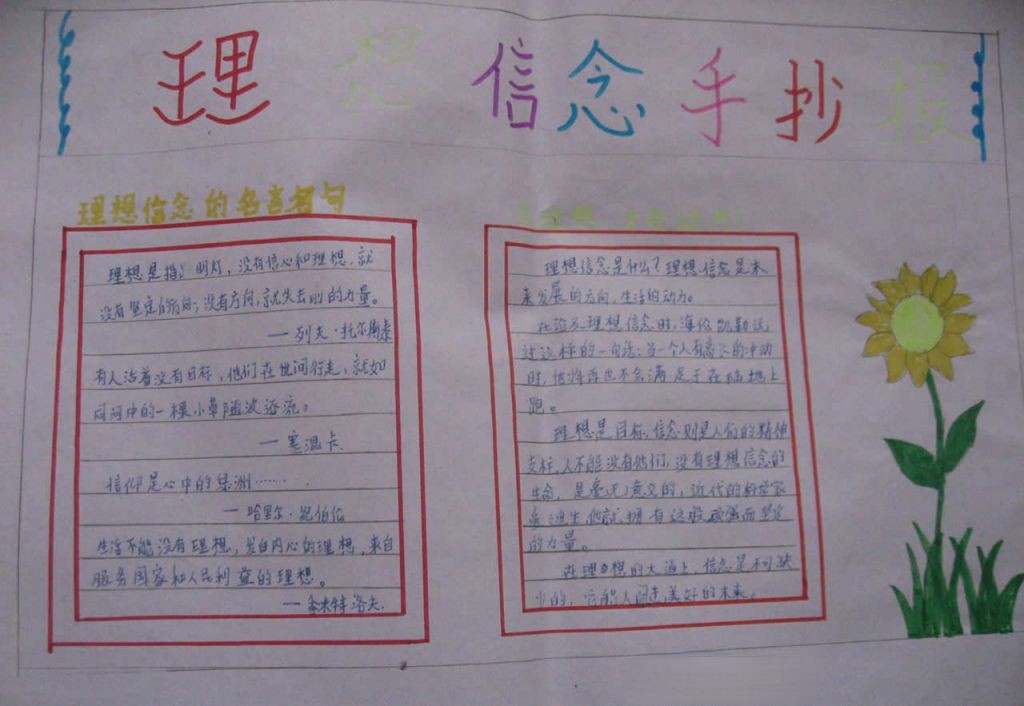 理想信念手抄报
理想信念的名言名句
理想是指 明灯，没有信心和理想，就
没有坚定的方向；没有方向，就失去 的力量。
— 列夫·托尔斯泰
有人活着没有目标，他们在世间行走，就如
同河中的一棵小草随波逐流。
— 塞涅卡
信仰是心中的绿洲……
— 哈里尔·纪伯伦
生活不能没有理想，发自内心的理想，来自
服务国家和人民利益的理想。
— 季米特洛夫
理想信念是什么？理想、信念是未
来发展的方向，生活的动力。
在谈及理想信念时，海伦凯勒说
过这样的一句话：当一个人有高飞的冲动
时，他将再也不会满足于在陆地上
跑。
理想是目标，信念则是人们的精神
支柱，人不能没有他们，没有理想信念的
生命，是毫无意义的，近代的科学家
他就拥有这般顽强而坚定
的力量。
在理想的大道上，信念是不可缺
少的，它能人 美好的未来。